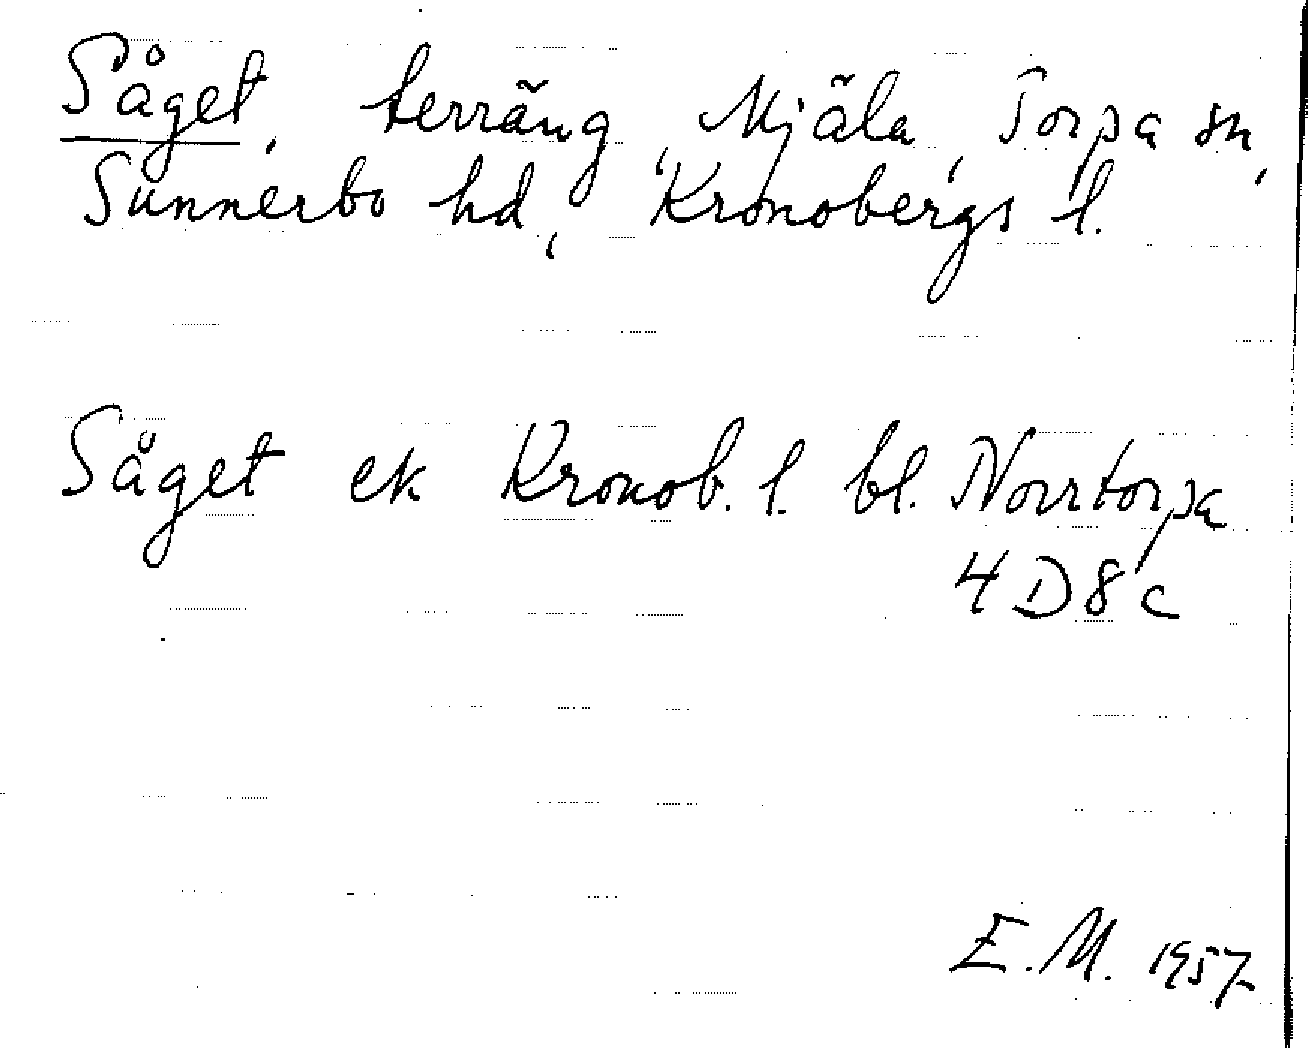 Såget, terräng, Mjäla, Torpa sn,
Sunnerbo hd, Kronobergs l.
Såget ek Kronob. l. bl. Norrtorpa
4D8c
E.M. 1957